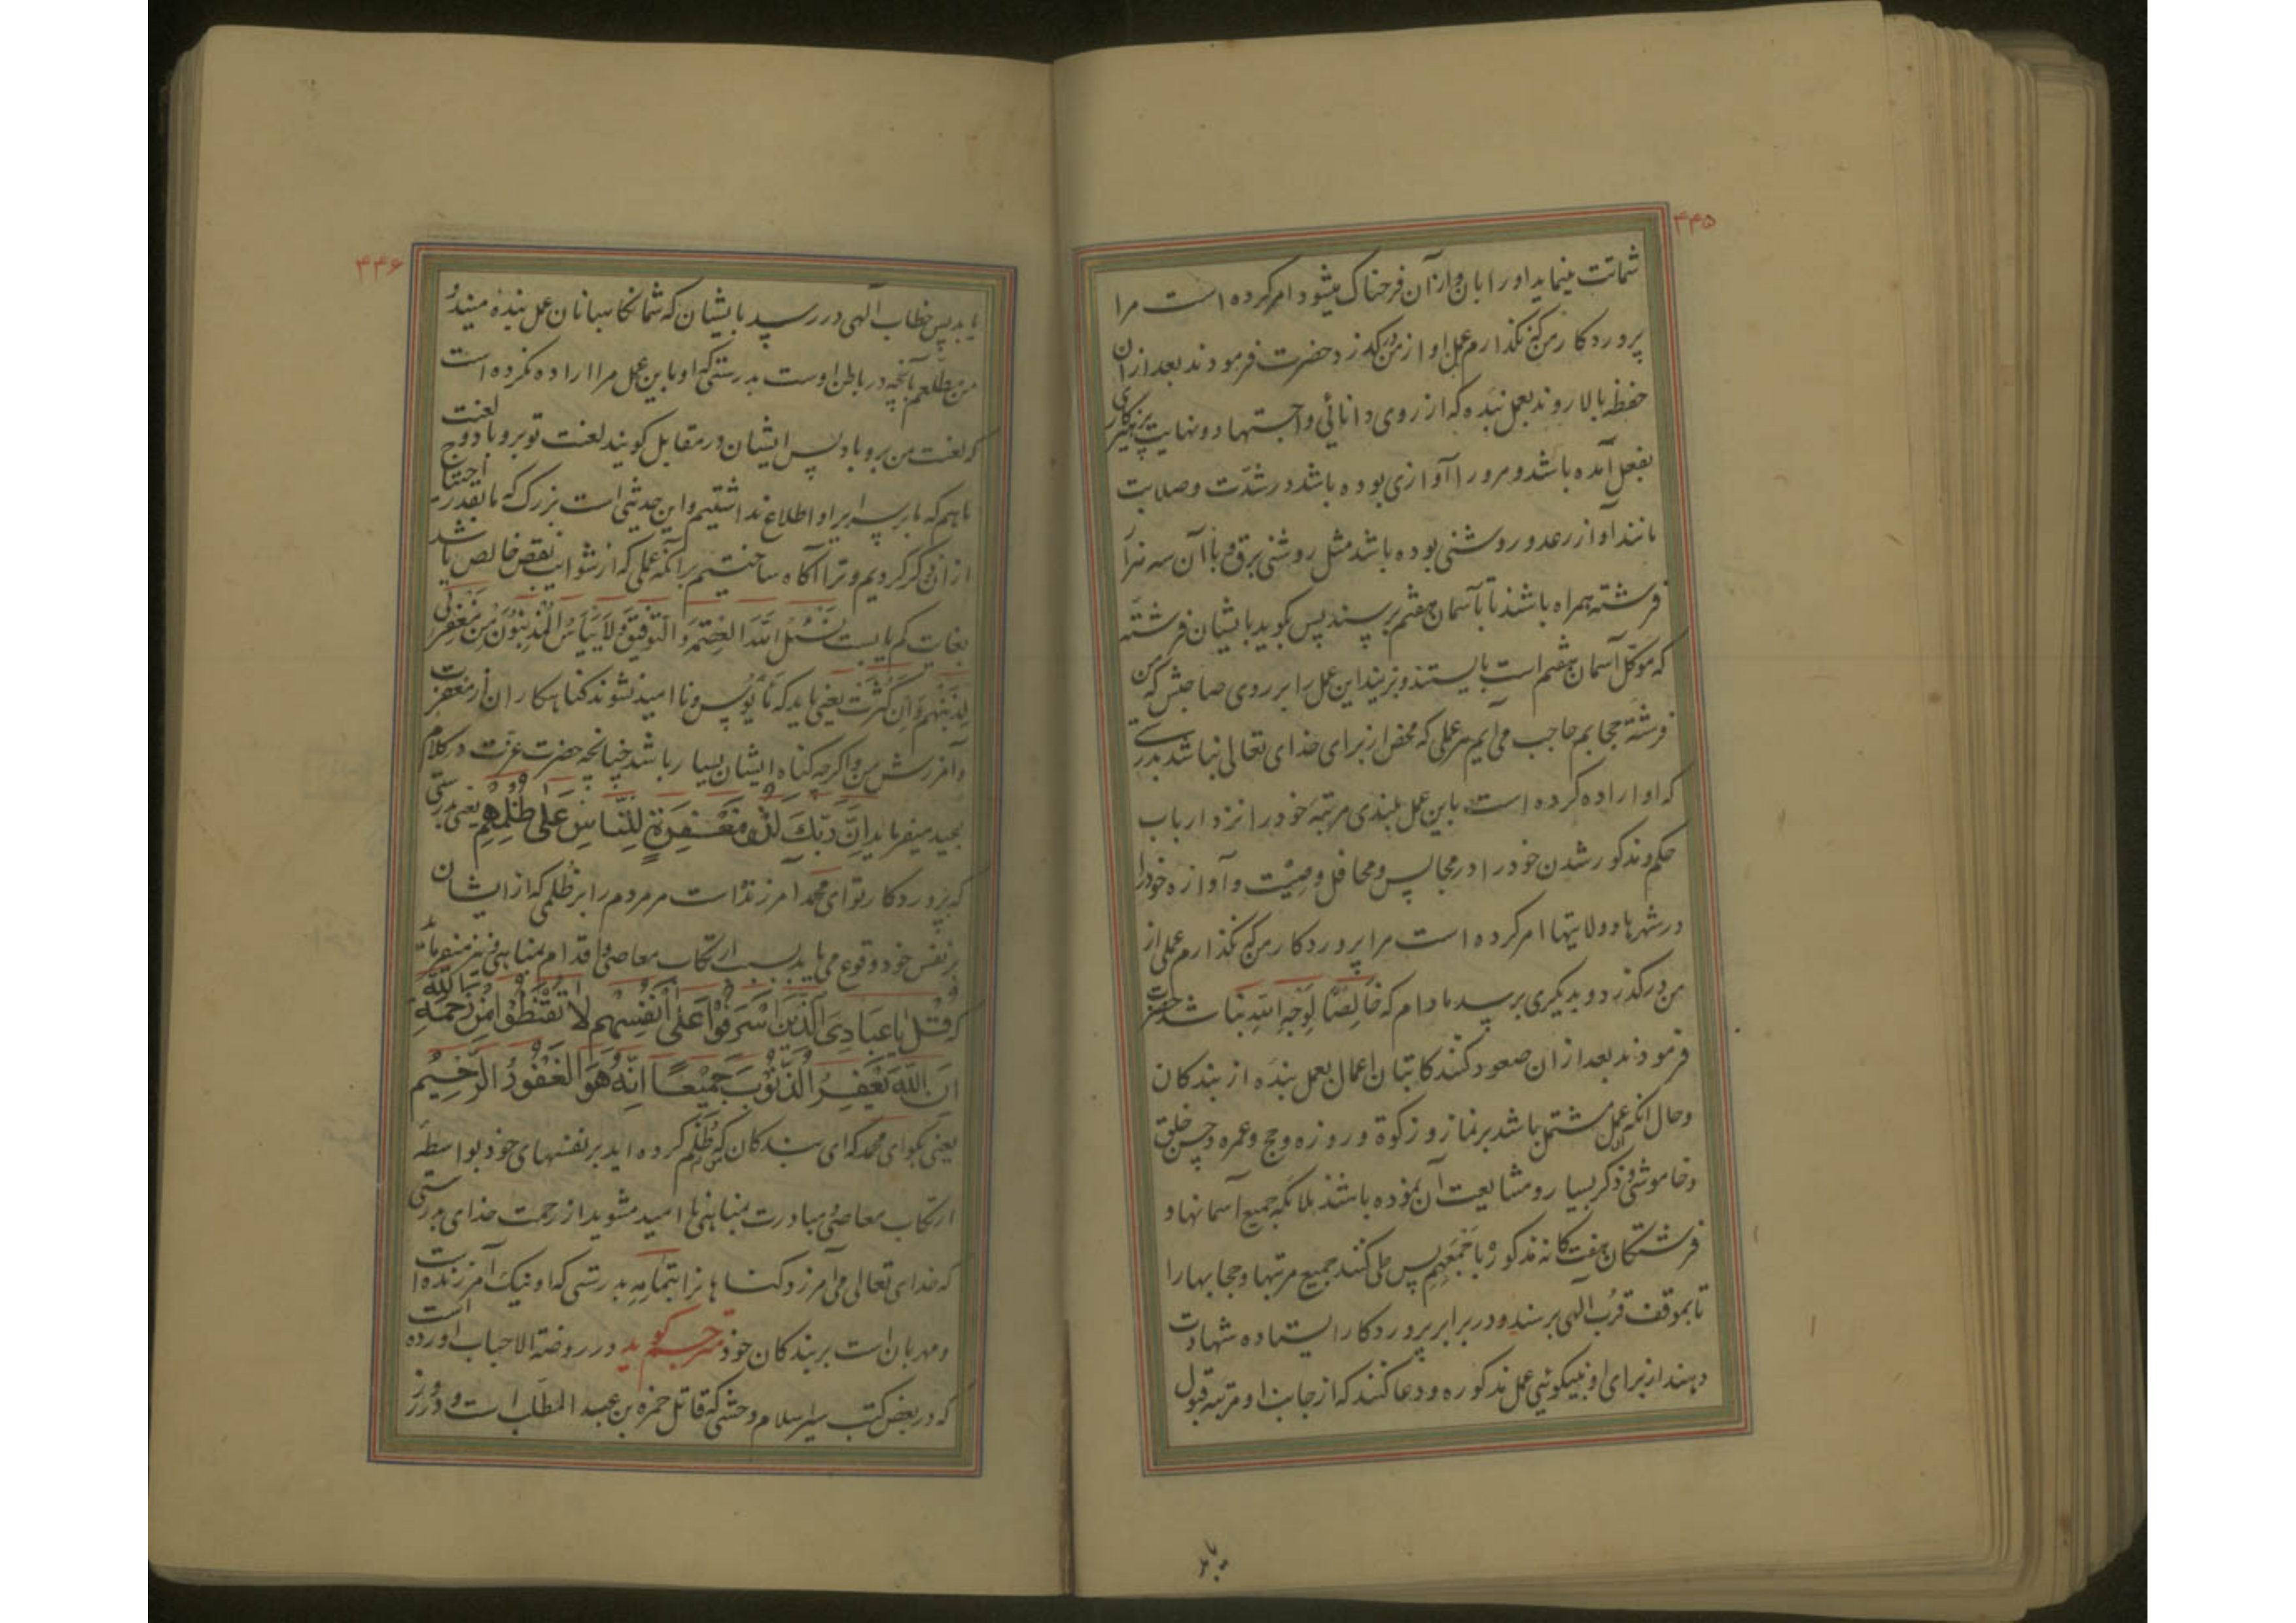 ۴۴۵
شماتت مینماید او را بان و از آن فرحناک میشود امر کرده است مرا
پروردکار من که نکذارم عمل او از من درکذرد و حضرت فرمودند بعد از ان
حفظه بالا روند بعمل بنده که از روی دانائی و اجتهاد و نهایت پرهیزکاری
بفعل آمده باشد و مرور را آوازی بوده باشد در شدّت و صلابت
مانند آواز رعد و روشنی بوده باشد مثل روشنی برق و با آن سه هزار
فرشته همراه باشند تا بآسمان هفتم برسند پس کوید بایشان فرشته
که موکّل آسمان هفتم است بایستند و بزنید این عمل را بر روی صاحبش که من
فرشته حجابم حاجب می آیم هر عملی که محض از برای خدای تعالی نباشد بدرستی
که او اراده کرده است باین عمل بلندی مرتبه خود را نزد ارباب
حکم و مذکور شدن خود را در مجالس و محافل و صِیْت و آوازه خود را
در شهرها و ولایتها امر کرده است مرا پروردکار من که نکذارم عملی از
من درکذرد و بدیکری برسد مادام که خَالِصًا لِوَجْهِ اللهِ نباشد حضرت
فرمودند بعد از ان صعود کنند کاتبان اعمال بعمل بنده از بندکان
و حال انکه ان عمل مشتمل باشد بر نماز و زکوة و روزه و حج و عمره و حسن خلق
و خاموشی و ذکر بسیار و مشایعت آن نموده باشند ملائکه جمیع آسمانها و
فرشتکان هفتکانه مذکوره بِاَجْمَعِهِم پس طی کنند جمیع مرتبها و حجابها را
تا بموقف قُرب الهی برسند و در برابر پروردکار ایستاده شهادت
دهند از برای او بنیکوئیی عمل مذکوره و دعا کنند که از جانب او مرتبه قبول
یابد
۴۴۶
یابد پس خطاب آلهی در رسد بایشان که شما نکاهبانان عمل بنده منید و
من مطّلعم بآنچه در باطن اوست بدرستی که او باین عمل مرا اراده نکرده است
که لعنت من برو باد پس ایشان در مقابل کویند لعنت تو برو باد و لعنت
ما هم که ما بر سرایر او اطلاع نداشتیم و این حدیثی است بزرک که ما بقدر احتیاج
از ان ذکر کردیم و ترا آکاه ساختیم بر آنکه عملی که از شوائب نقص خالص باشد
بغایت کم یابست نَسْئَلُ اللهَ العِصْمَةَ وَ التَّوْفِیقَ وَ لاَ یَیْأَسُ المُذْنِبُونَ مِن مَغْفِرَتِی
لِذَنْبِهِم وَ اِن کَثُرَت یعنی باید که مأیوس و ناامید نشوند کناهکاران از مغفرت
و آمرزش من و اکرچه کناه ایشان بسیار باشد چنانچه حضرت عزّت در کلام
مجید میفرماید اِنَّ رَبَّكَ لَذُو مَغْفِرَةٍ لِلنَّاسِ عَلَى ظُلْمِهِمْ یعنی بدرستی
که پروردکار تو ای محمد آمرزنده است مر مردم را بر ظلمی که از ایشان
بر نفس خود وقوع می یابد بسبب ارتکاب معاصی و اقدام بمناهی و نیز میفرماید
که قُلْ یَا عِبَادِیَ الَّذِینَ اَسْرَفُوا عَلَى اَنْفُسِهِمْ لاَ تَقْنَطُوا مِنْ رَحْمَةِ اللهِ
اِنَّ اللهَ یَغْفِرُ الذُّنُوبَ جَمِیعًا اِنَّهُ هُوَ الغَفُورُ الرَّحِیمُ
یعنی بکو ای محمد که ای بندکان من که ظلم کرده اید بر نفسهای خود بواسطه
ارتکاب معاصی و مبادرت بمناهی ناامید مشوید از رحمت خدای بدرستی
که خدای تعالی می آمرزد کناهانرا بتَمَامِه بدرستی که او نیک آمرزنده است
و مهربان است بر بندکان خود مترجم کوید در روضة الاحباب اورده است
که در بعض کتب سیر اسلام وحشی که قاتل حمزه بن عبد المطّلب است و در روز